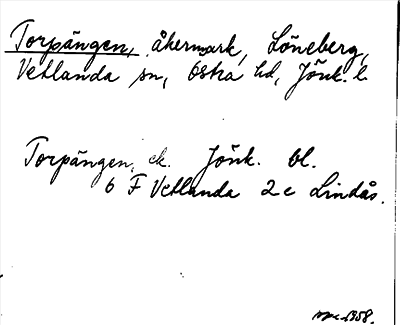 Torpängen, åkermark, Löneberg,
Vetlanda sn, Östra hd, Jönk. l.
Torpängen, ek. Jönk. bl.
6 F Vetlanda 2 c Lindås.
1958.